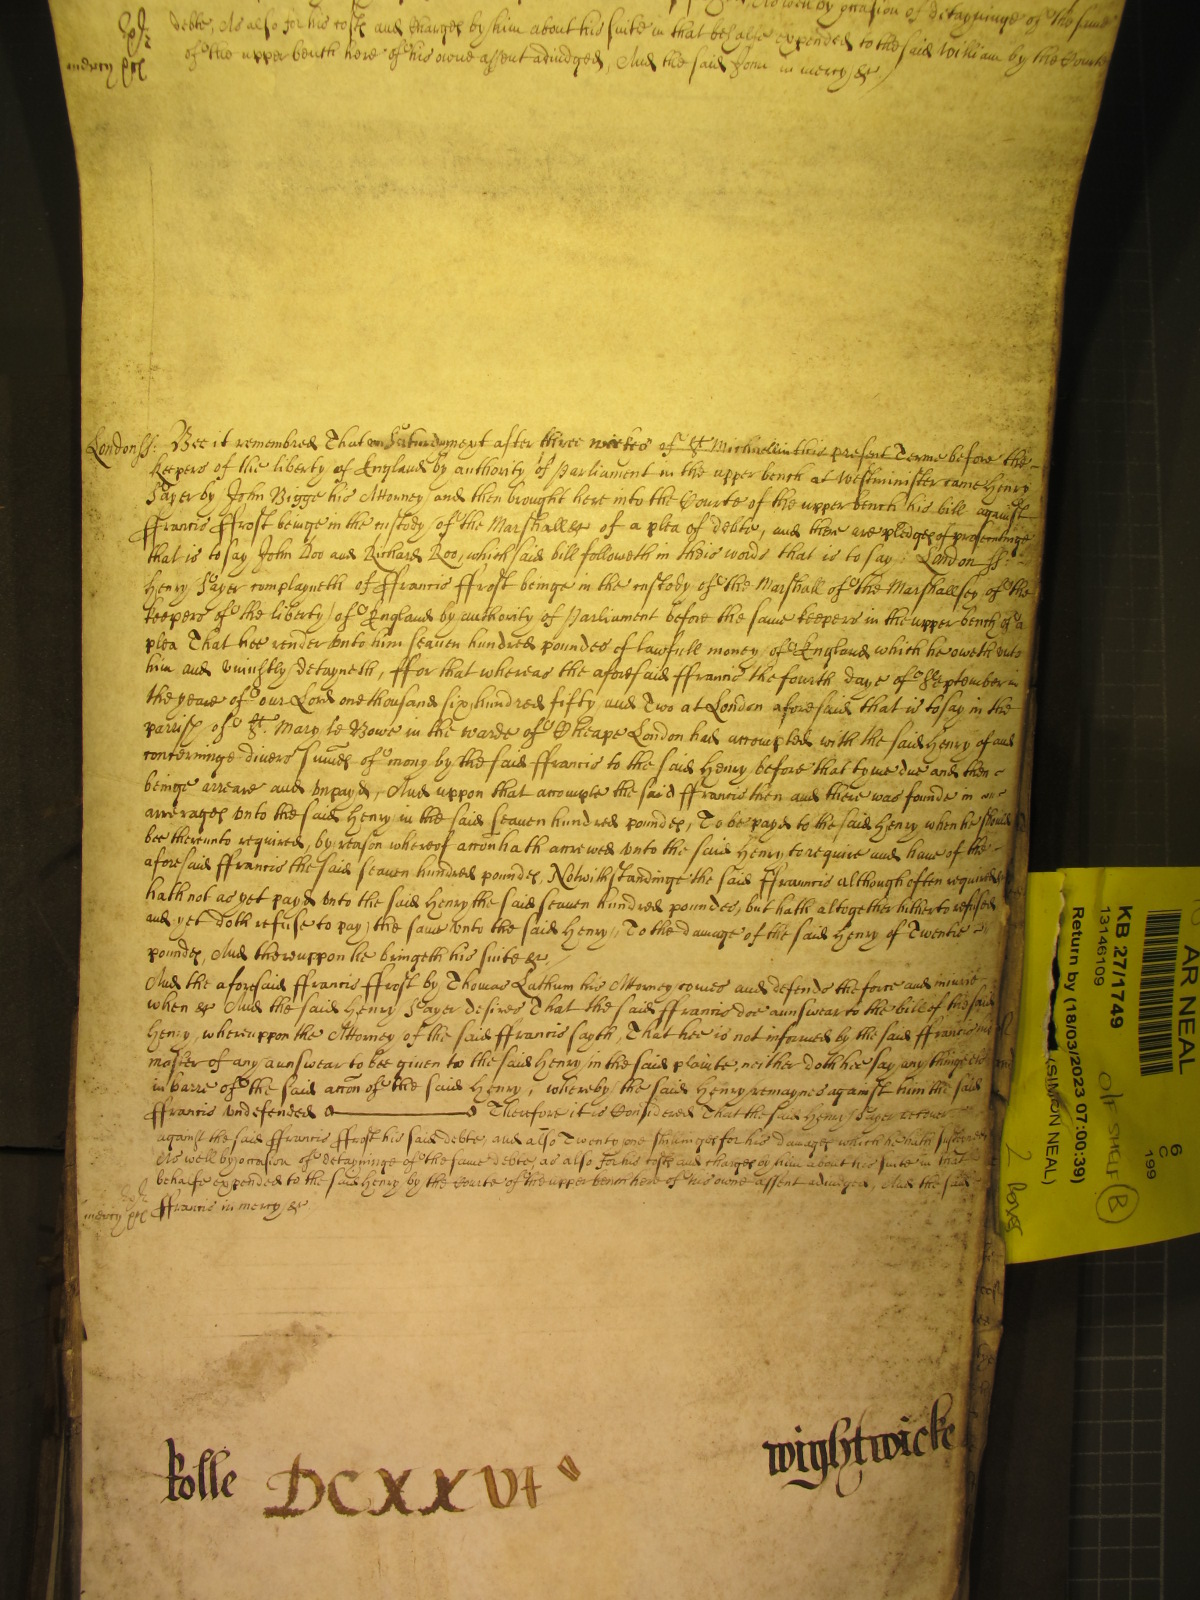 As well by occasion of detayninge of the same
debte, As also for his costs and charges by him about his suite in that behalfe expended to the said William by the Courte
of the upper bench here of his owne assent adiudged, And the said John in mercy &c
mercy
London ss: Bee it remembred That on Saturday next after three weekes of St Michaell in this present Terme before the
keepers of the liberty of England by authority of Parliament in the upper bench at Westminister came Henry
Sayer by John Bigge his Attorney and then brought here into the Courte of the upper bench his bill against
ffrancis ffrost beinge in the custody of the Marshall &c of a plea of debte, and there are pledges of prosecutinge
that is to say John Doo and Richard Roo, which said bill followeth in theis words that is to say: London ss:
Henry Sayer complayneth of ffrancis ffrost beinge in the custody of the Marshall of the Marshallsey of the
keepers of the liberty of England by authority of Parliament before the same keepers in the upper bench of a
plea That hee render vnto him seauen hundred poundes of lawfull money of England which he oweth vnto
him and vniustly detayneth, ffor that whereas the aforesaid ffrancis the fourth daye of September
the yeare of our Lord one thousand six hundred fifty and Two at London aforesaid that is to say in the
parish of St. Mary le Bowe in the warde of Cheape London had accompted with the said Henry of and
concerninge divers summes of mony by the said ffrancis to the said Henry before that tyme due and then
beinge arreare and vnpayd, And uppon that accompte the said ffrancis then and there was founde in
arrerages vnto the said Henry in the said seauen hundred poundes, To be payd to the said Henry when he should
bee thereunto required, by reason whereof accon hath accrewed vnto the said Henry to require and have of the
aforesaid ffrancis the said seauen hundred poundes, Notwithstandinge the said ffrancis although often required
hath not as yet payd vnto the said Henry the said seauen hundred poundes, but hath altogether hitherto refused
and yet doth refuse to pay the same vnto the said Henry, To the damage of the said Henry of Twentie
poundes, And thereuppon he bringeth his suite &c
And the aforesaid ffrancis ffrost by Thomas Lathum his Attorney comes and defends the force and iniurie
when &c And the said Henry Sayer desires That the said ffrancis doe aunswear to the bill of the said
Henry, whereuppon the Attorney of the said ffrancis sayth, That hee is not informed by the said ffrancis his
master of any aunswear to bee given to the said Henry in the said plainte, neither doth hee say any thinge
in barre of the said accon of the said Henry, whereby the said Henry remaynes against him the said
ffrancis vndefended Therefore it is Considered That the said Henry Sayer recover
against the said ffrancis ffrost his said debte, and also Twenty one shillinges for his damages which he hath susteyned
As well by occasion of detayninge of the same debte, as also for his costs and charges by him about his suite in that
behalfe expended to the said Henry by the Courte of the upper bench here of his owne assent adiudged, And the said
mercy ffrancis in mercy &c
Rolle DCXXVI
wightwicke
AR NEAL
KB 27/1749
13146109
Return by (18/03/2023 07:00:39)
(SIMON NEAL)
6
C
199
O/F SHELF B